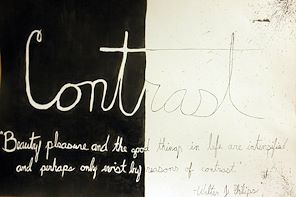 Contrast
"Beauty, pleasure and the good things in life are intensified
and perhaps only exist by reasons of contrast"
-Walter J. Phillips